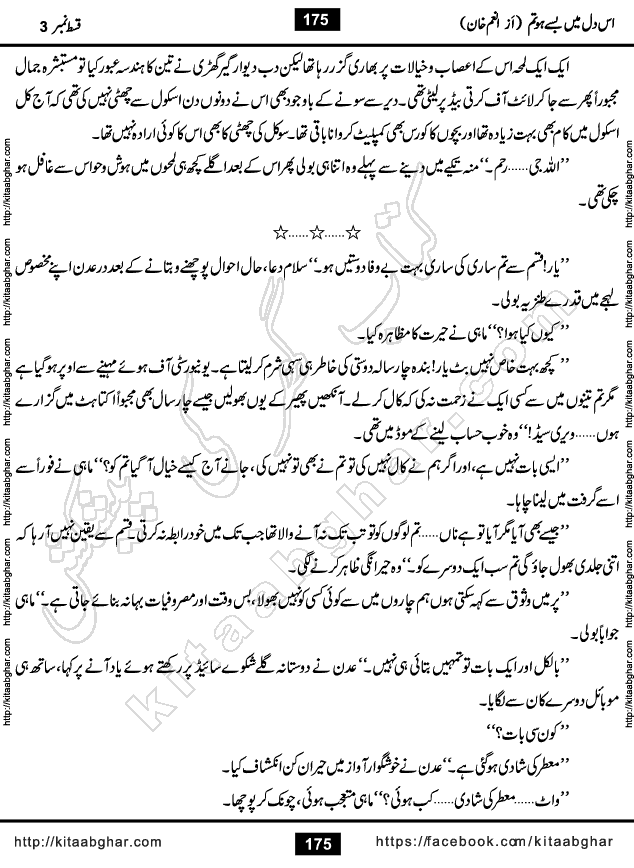 اس دل میں بسے ہو تم (از انعم خان)
175
قسط نمبر 3
ایک ایک لمحہ اس کے اعصاب و خیالات پر بھاری گزر رہا تھا لیکن دب دیوار گیر گھڑی نے تین کا ہندسہ عبور کیا تو مستبشرہ جمال
مجبوراً پھر سے جا کر لائٹ آف کرتی بیڈ پر لیٹی تھی۔ دیر سے سونے کے باوجود بھی اس نے دونوں دن اسکول سے چھٹی نہیں کی تھی کہ آج کل
اسکول میں کام بھی بہت زیادہ تھا اور بچوں کا کورس بھی کمپلیٹ کروانا باقی تھا۔ سو کل کی چھٹی کا بھی اس کا کوئی ارادہ نہیں تھا۔
’’اللہ جی......رحم۔‘‘ منہ تکیے میں دینے سے پہلے وہ اتنا ہی بولی پھر اس کے بعد اگلے کچھ ہی لمحوں میں ہوش و حواس سے غافل ہو
چکی تھی۔
☆......☆......☆
’’یار! قسم سے تم ساری کی ساری بہت بے وفا دوستیں ہو۔‘‘ سلام دعا، حال احوال پوچھنے و بتانے کے بعد در عدن اپنے مخصوص
لہجے میں قدرے طنزیہ بولی۔
’’کیوں کیا ہوا؟‘‘ ماہی نے حیرت کا مظاہرہ کیا۔
’’کچھ بہت خاص نہیں بٹ یار! بندہ چار سالہ دوستی کی خاطر ہی سہی شرم کر لیتا ہے۔ یونیورسٹی آف ہوئے مہینے سے اوپر ہو گیا ہے
مگر تم تینوں میں سے کسی ایک نے زحمت نہ کی کہ کال کر لے۔ آنکھیں پھیر کے یوں بھولیں جیسے چار سال بھی مجبوراً اکتاہٹ میں گزارے
ہوں......ویری سیڈ!‘‘ وہ خوب حساب لینے کے موڈ میں تھی۔
’’ایسی بات نہیں ہے، اور اگر ہم نے کال نہیں کی تو تم نے بھی تو نہیں کی، جانے آج کیسے خیال آ گیا تم کو؟‘‘ ماہی نے فوراً سے
اسے گرفت میں لینا چاہا۔
’’جیسے بھی آیا مگر آیا تو ہے ناں......تم لوگوں کو تو تب تک نہ آنے والا تھا جب تک میں خود رابطہ نہ کرتی۔ قسم سے یقین نہیں آ رہا کہ
اتنی جلدی بھول جاؤ گی تم سب ایک دوسرے کو۔‘‘ وہ حیرانگی ظاہر کرنے لگی۔
’’پر میں وثوق سے کہہ سکتی ہوں ہم چاروں میں سے کوئی کسی کو نہیں بھولا، بس وقت اور مصروفیات بہانہ بنائے جاتی ہے۔‘‘ ماہی
جواباً بولی۔
’’بالکل اور ایک بات تو تمہیں بتائی ہی نہیں۔‘‘ عدن نے دوستانہ گلے شکوے سائیڈ پر رکھتے ہوئے یاد آنے پر کہا، ساتھ ہی
موبائل دوسرے کان سے لگایا۔
’’کون سی بات؟‘‘
’’معطر کی شادی ہو گئی ہے۔‘‘ عدن نے خوشگوار آواز میں حیران کن انکشاف کیا۔
’’واٹ......معطر کی شادی......کب ہوئی؟‘‘ ماہی متعجب ہوئی، چونک کر پوچھا۔
کتاب گھر کی پیشکش
kitaabghar.com
http://kitaabghar.com
http://kitaabghar.com
http://kitaabghar.com
http://kitaabghar.com
http://kitaabghar.com
http://kitaabghar.com
http://kitaabghar.com
http://kitaabghar.com
http://kitaabghar.com
http://kitaabghar.com
http://kitaabghar.com
http://kitaabghar.com
http://kitaabghar.com
175
https://facebook.com/kitaabghar